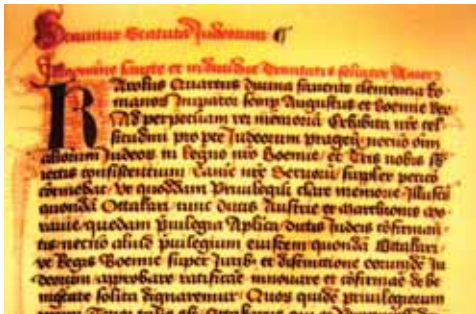 Secuntur Statuta Judeorum
In nomine sancte et individue Trinitatis feliciter Amen
Karolus Quartus divina favente clemencia Ro
manor Imperator semp Augustus et boemie Rex
Ad perpetuam rei memoriam Exhibita nre cel
situdini pro pte Judeorum pragen necno oim
aliorum Judeor in Regno nro Boemie et Tris nobis sb
iectis consistentium Camere nre Servor supplex peticio
continebat Ut quoddam Privilegiu clare memorie Illustris
quonda Ottakari tunc ducis Austrie et marchionis mo
ravie quedam privilegia dictis Judeis confirman
tis necno aliud privilegium eiusdem quonda Ottakari
ut Regis Boemie super Juribus et distinctione eorumde Ju
deorum approbare ratificare innovare et cofirmare de be
nignitate solita dignaremur Quor quide privilegiorum